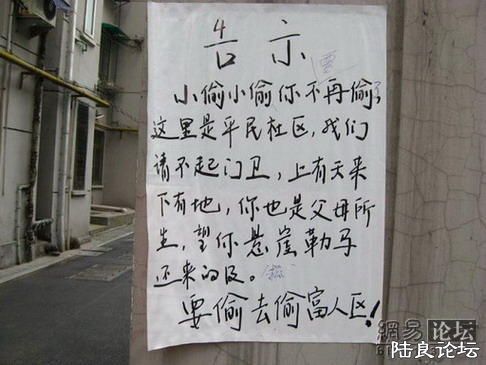 告示
要
小偷小偷你不再偷,了
这里是平民社区,我们
请不起门卫,上有天来
下有地,你也是父母所
生,望你悬崖勒马
还来的及。
要偷去偷富人区!
網易 论坛
陆良论坛